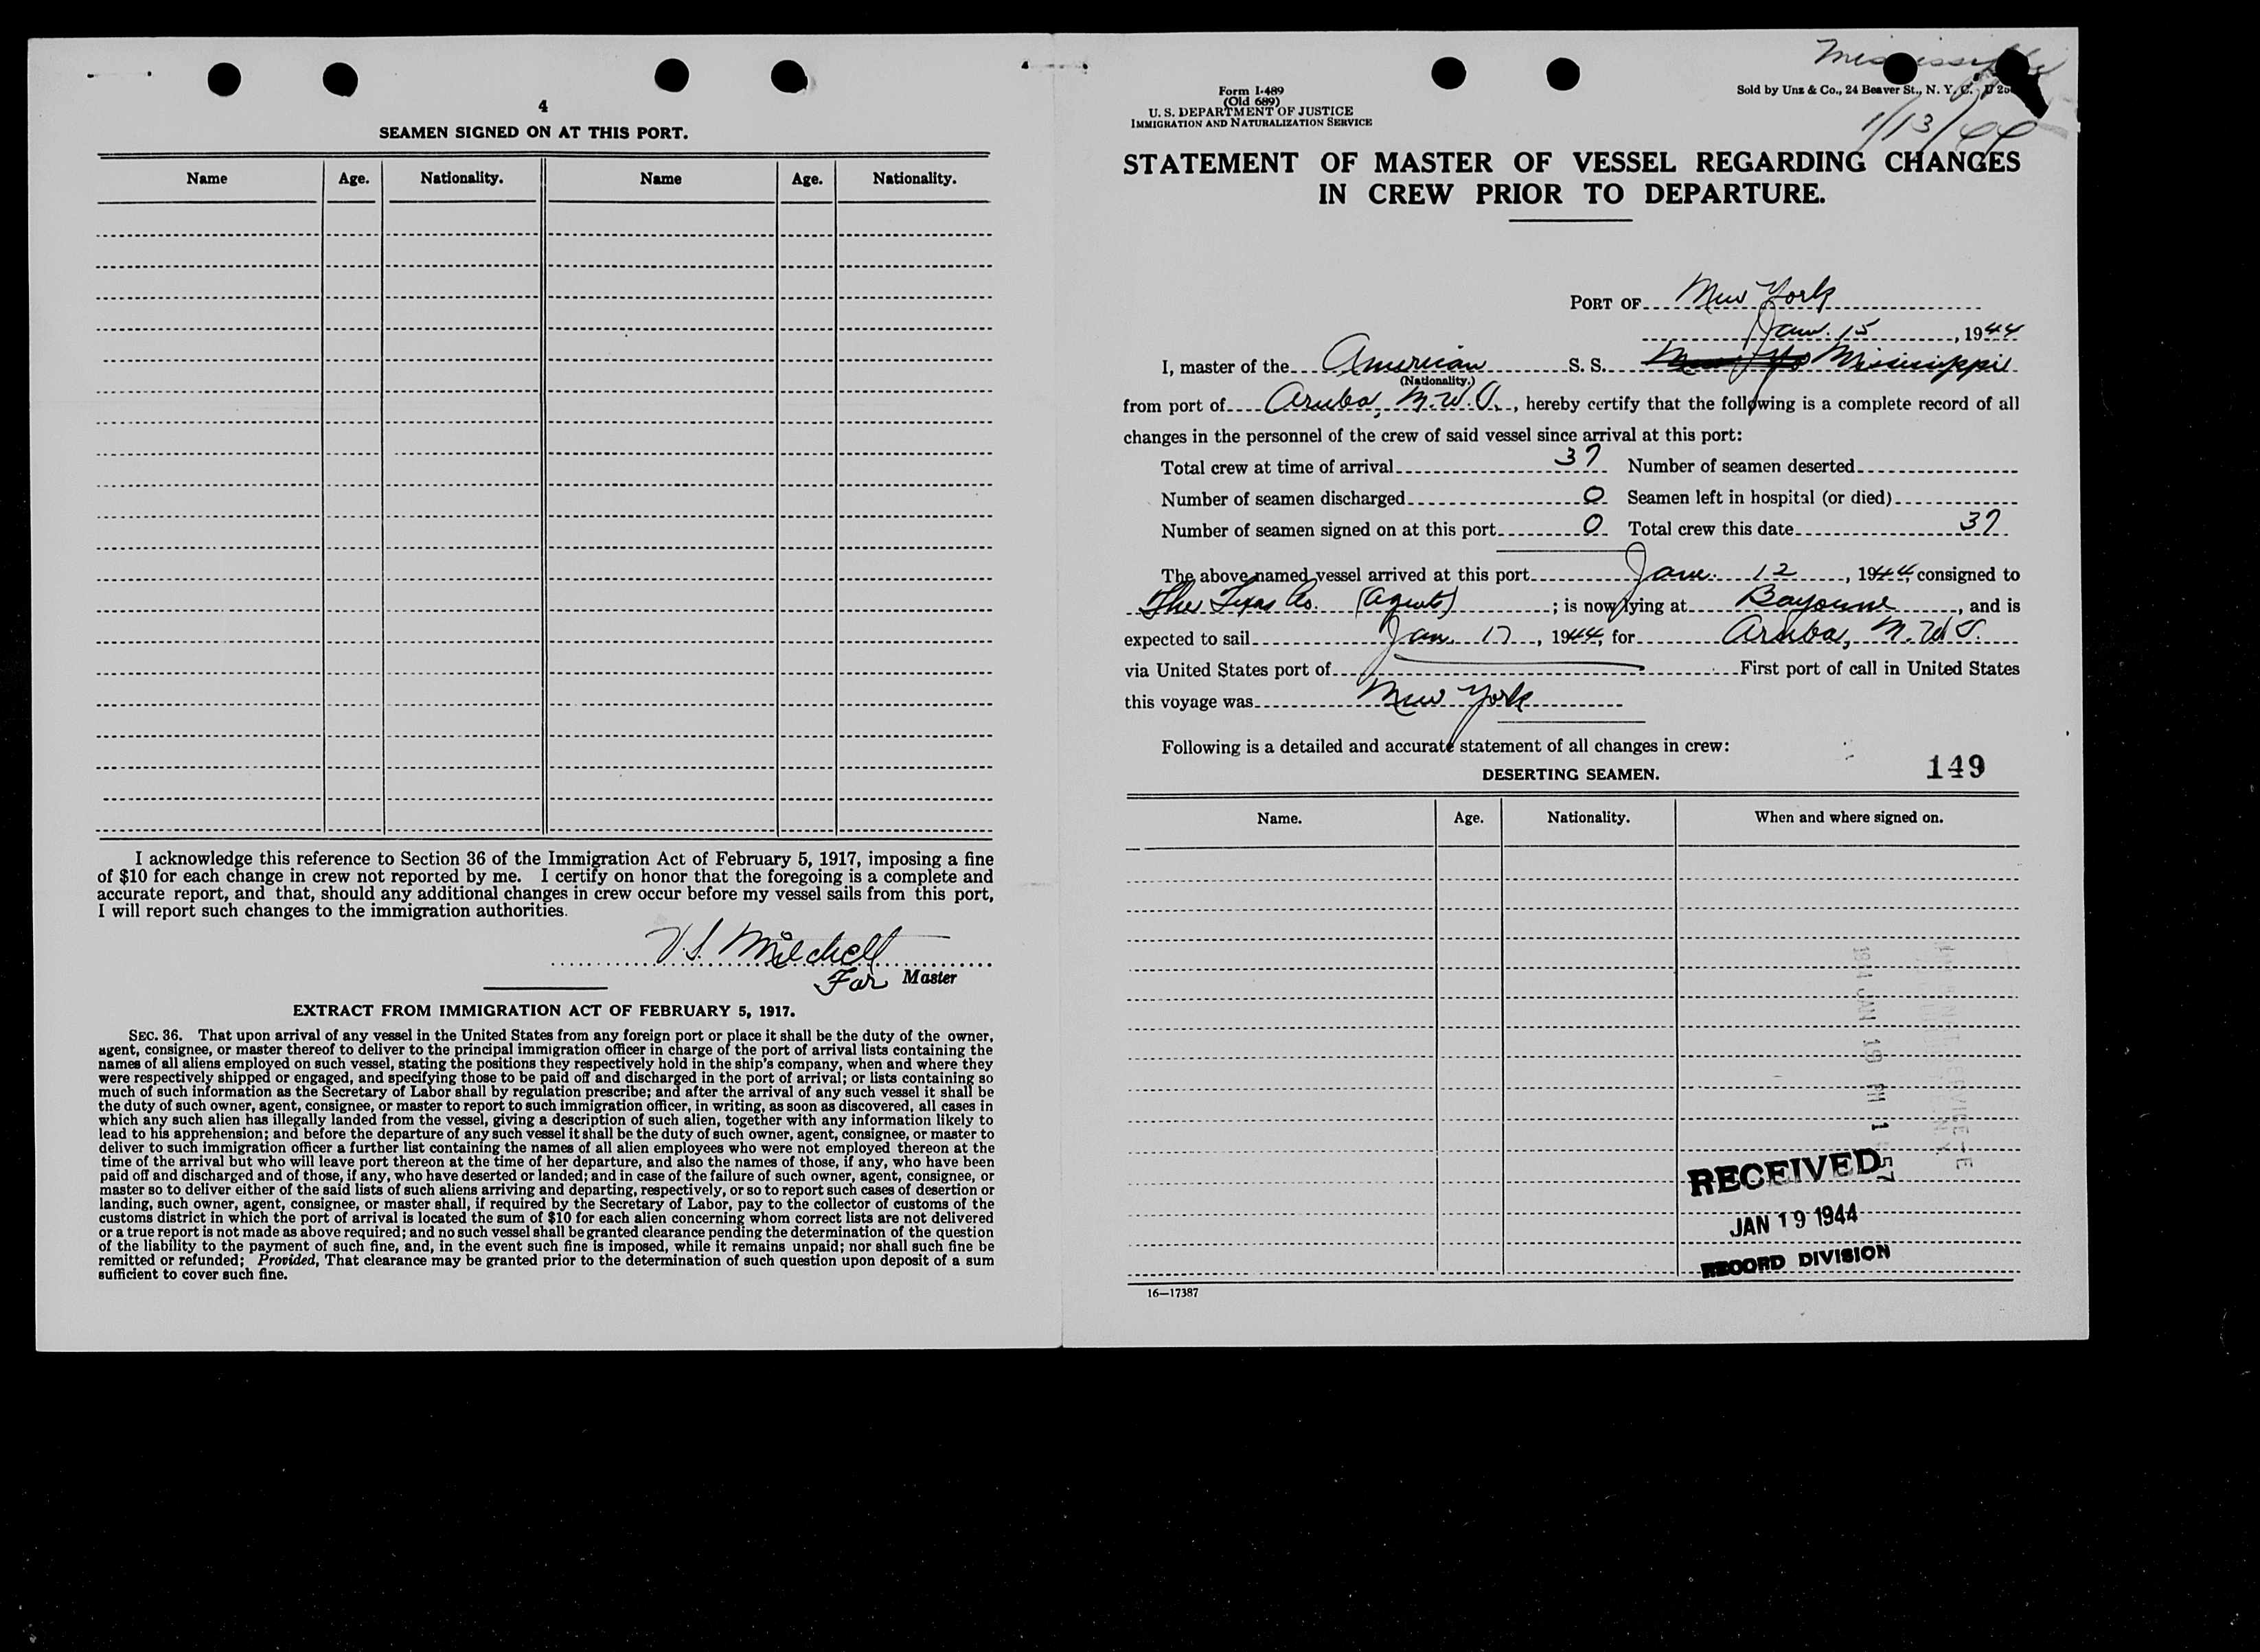 4
SEAMEN SIGNED ON AT THIS PORT.
Name Age. Nationality. Name Age. Nationality.
I acknowledge this reference to Section 36 of the Immigration Act of February 5, 1917, imposing a fine
of $10 for each change in crew not reported by me. I certify on honor that the foregoing is a complete and
accurate report, and that, should any additional changes in crew occur before my vessel sails from this port,
I will report such changes to the immigration authorities.
V. S. Mitchell
For Master
EXTRACT FROM IMMIGRATION ACT OF FEBRUARY 5, 1917.
SEC. 36. That upon arrival of any vessel in the United States from any foreign port or place it shall be the duty of the owner,
agent, consignee, or master thereof to deliver to the principal immigration officer in charge of the port of arrival lists containing the
names of all aliens employed on such vessel, stating the positions they respectively hold in the ship's company, when and where they
were respectively shipped or engaged, and specifying those to be paid off and discharged in the port of arrival; or lists containing so
much of such information as the Secretary of Labor shall by regulation prescribe; and after the arrival of any such vessel it shall be
the duty of such owner, agent, consignee, or master to report to such immigration officer, in writing, as soon as discovered, all cases in
which any such alien has illegally landed from the vessel, giving a description of such alien, together with any information likely to
lead to his apprehension; and before the departure of any such vessel it shall be the duty of such owner, agent, consignee, or master to
deliver to such immigration officer a further list containing the names of all alien employees who were not employed thereon at the
time of the arrival but who will leave port thereon at the time of her departure, and also the names of those, if any, who have been
paid off and discharged and of those, if any, who have deserted or landed; and in case of the failure of such owner, agent, consignee, or
master so to deliver either of the said lists of such aliens arriving and departing, respectively, or so to report such cases of desertion or
landing, such owner, agent, consignee, or master shall, if required by the Secretary of Labor, pay to the collector of customs of the
customs district in which the port of arrival is located the sum of $10 for each alien concerning whom correct lists are not delivered
or a true report is not made as above required; and no such vessel shall be granted clearance pending the determination of the question
of the liability to the payment of such fine, and, in the event such fine is imposed, while it remains unpaid; nor shall such fine be
remitted or refunded; Provided, That clearance may be granted prior to the determination of such question upon deposit of a sum
sufficient to cover such fine.
Mississippi
Form I-489
(Old 689)
U. S. DEPARTMENT OF JUSTICE
IMMIGRATION AND NATURALIZATION SERVICE
Sold by Unz & Co., 24 Beaver St., N. Y. C.
1/13/44
STATEMENT OF MASTER OF VESSEL REGARDING CHANGES
IN CREW PRIOR TO DEPARTURE.
PORT OF New York
Jan. 15, 1944
I, master of the American S. S. Mississippi
(Nationality.)
from port of Aruba, N.W.I., hereby certify that the following is a complete record of all
changes in the personnel of the crew of said vessel since arrival at this port:
Total crew at time of arrival 37 Number of seamen deserted
Number of seamen discharged 0 Seamen left in hospital (or died)
Number of seamen signed on at this port 0 Total crew this date 37
The above named vessel arrived at this port Jan. 12, 1944, consigned to
The Texas Co. (Agents); is now lying at Bayonne, and is
expected to sail Jan. 17, 1944, for Aruba, N.W.I.
via United States port of First port of call in United States
this voyage was New York
Following is a detailed and accurate statement of all changes in crew:
149
DESERTING SEAMEN.
Name. Age. Nationality. When and where signed on.
1944 JAN 19 PM 1 57
RECEIVED
JAN 19 1944
RECORD DIVISION
16—17387